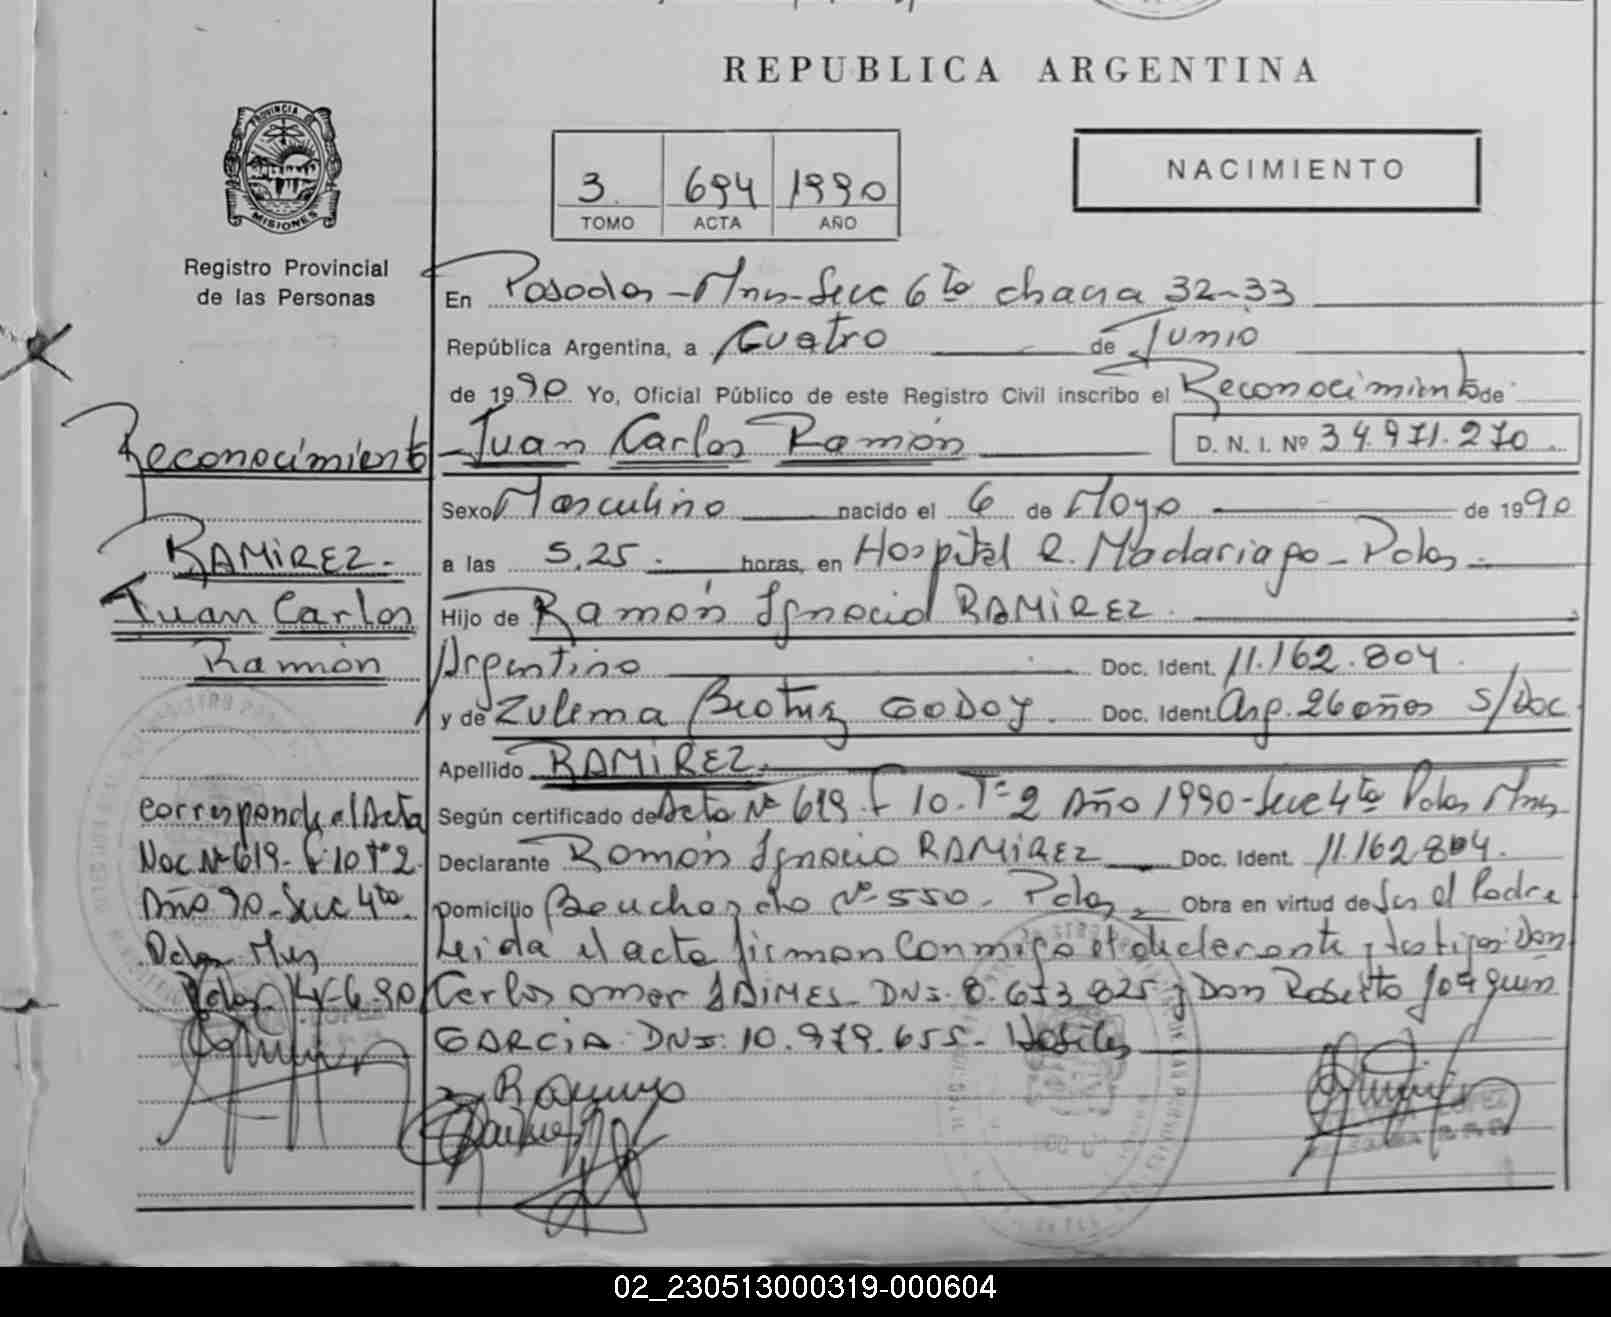 REPUBLICA ARGENTINA
PROVINCIA DE
MISIONES
Registro Provincial
de las Personas
3. 694 1990
TOMO ACTA AÑO
NACIMIENTO
En Posadas - Mnes - Secc 6ta chacra 32-33
República Argentina, a Cuatro de Junio
de 1990 Yo, Oficial Público de este Registro Civil inscribo el Reconocimiento de
Juan Carlos Ramón D. N. I. Nº 34.971.270
Sexo Masculino nacido el 6 de Mayo de 1990
a las 5,25 . horas, en Hospital R. Madariaga - Pdas -
Hijo de Ramón Ignacio RAMIREZ.
Argentino Doc. Ident. 11.162.804.
y de Zulema Beatriz GODOY. Doc. Ident. Arg. 26 años S/Doc
Apellido RAMIREZ.
Según certificado de Acta Nº 619. F 10. Tº 2 Año 1990 - Secc 4ta Pdas Mnes.
Declarante Ramón Ignacio RAMIREZ Doc. Ident. 11.162.804.
Domicilio Bouchardo Nº 550. Pdas - Obra en virtud de Ser el Padre
Leida el acta firman conmigo el declarante y testigos: Don
Carlos omar JAIMES. DNI. 8.653.825 y Don Roberto Joaquin
GARCIA. DNI: 10.979.655. Habiles
Reconocimiento
RAMIREZ.
Juan Carlos
Ramón
corresponde al Acta
Nac Nº 619. F 10 Tº 2.
Año 90 - Secc 4ta.
Pdas Mnes
Pdas 4-6-90
02_230513000319-000604